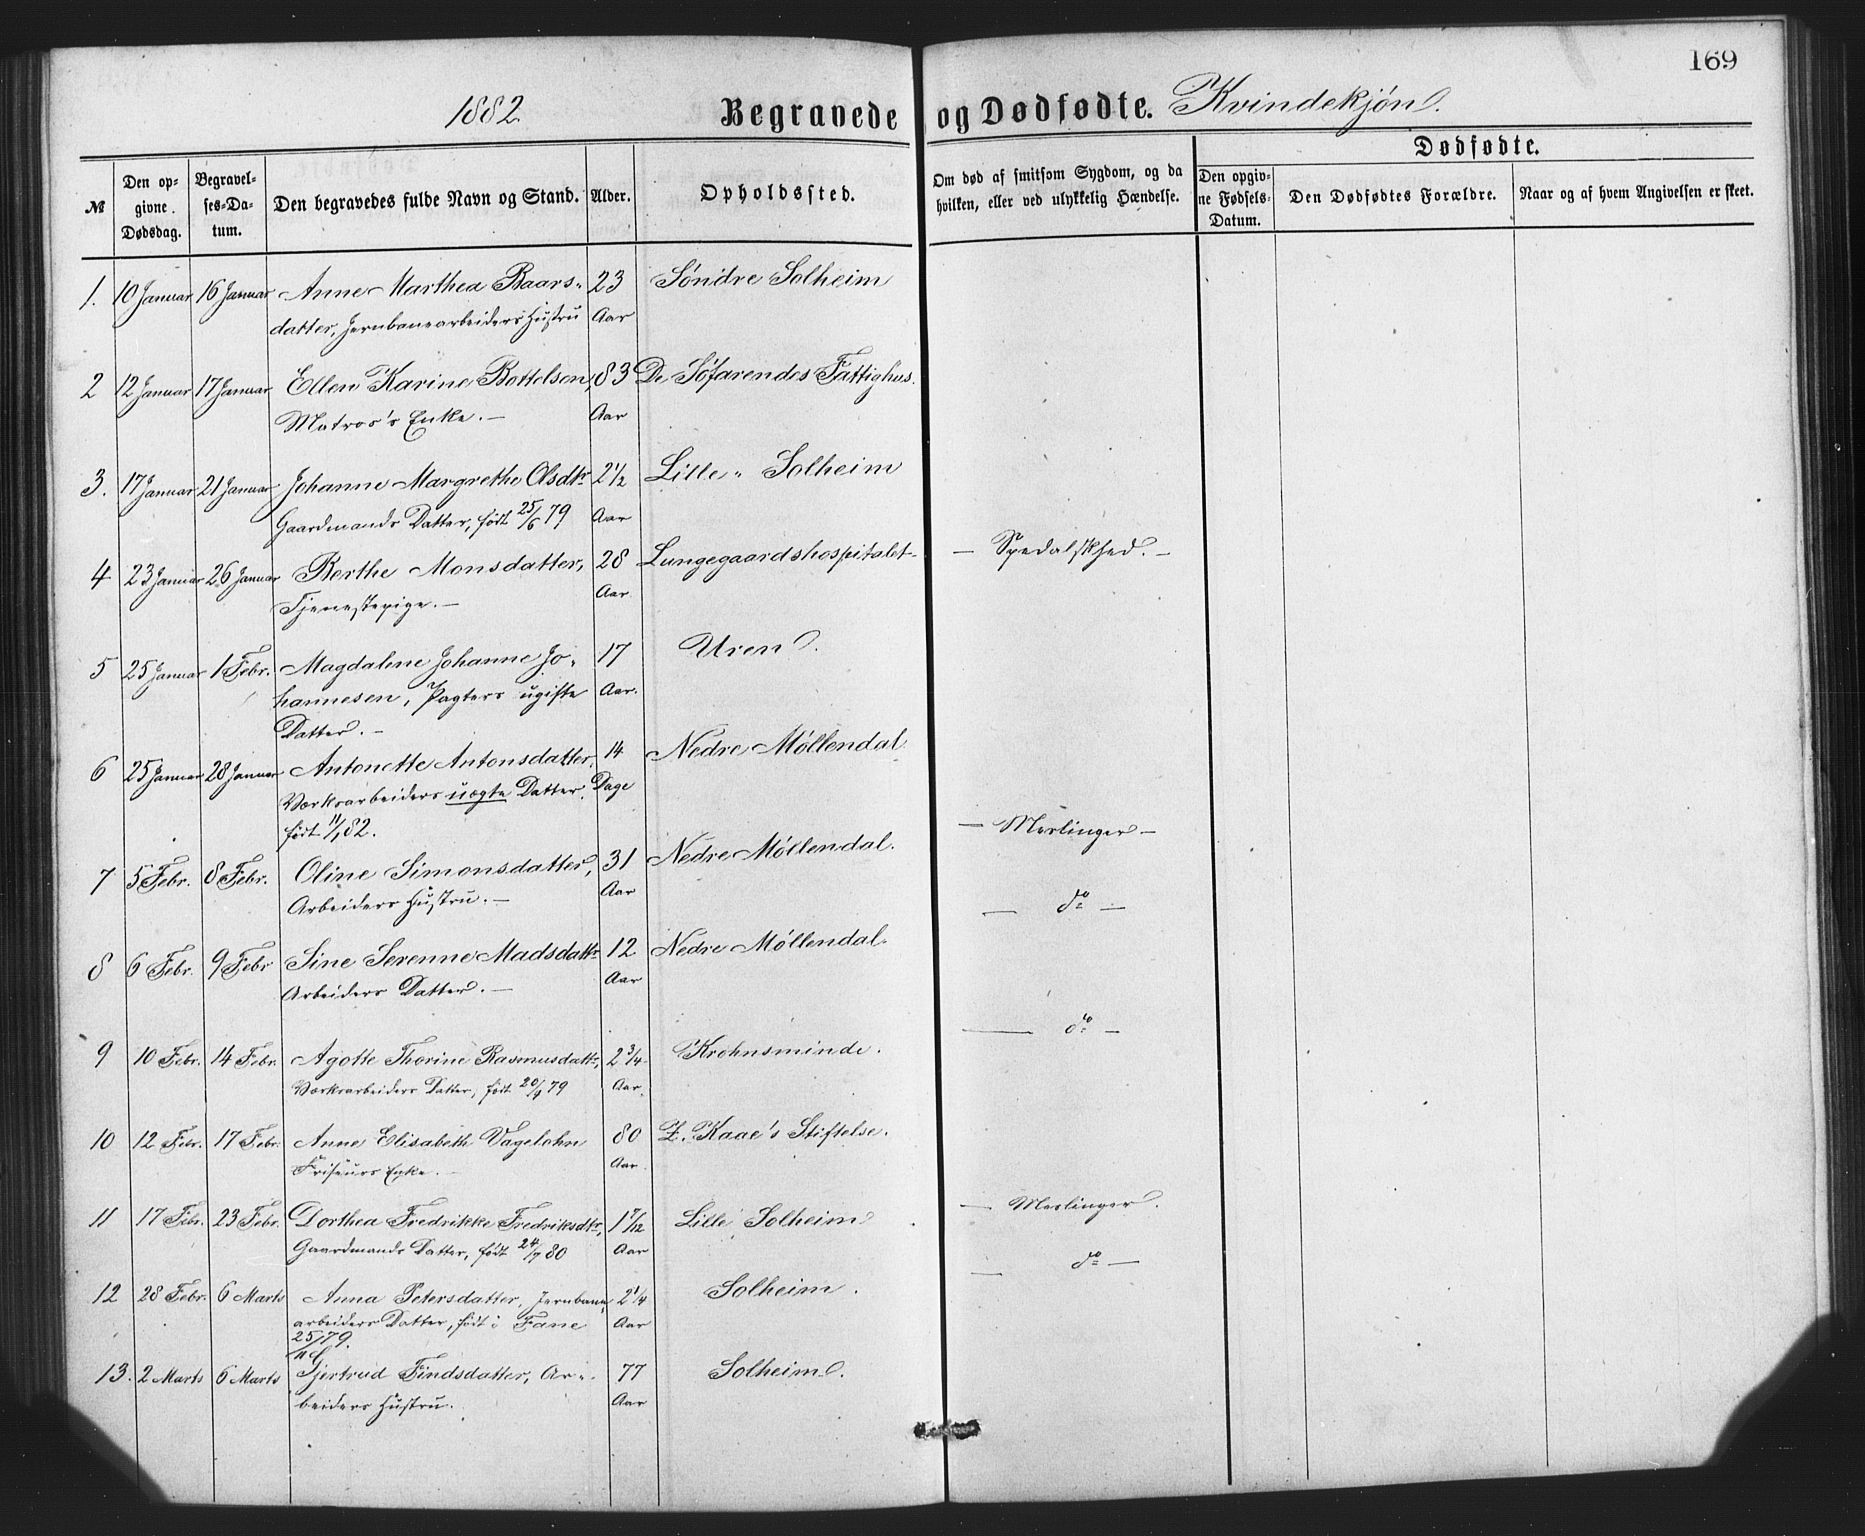 169
1882. Begravede og Dødfødte. Kvindekjøn.
Dødfødte.
№ | Den opgivne Dødsdag. | Begravelses-Datum. | Den begravedes fulde Navn og Stand. | Alder. | Opholdssted. | Om død af smitsom Sygdom, og da hvilken, eller ved ulykkelig Hændelse. | Den opgivne Fødsels-Datum. | Den Dødfødtes Forældre. | Naar og af hvem Angivelsen er skeet.
1. 10 Januar 16 Januar Anne Marthea Baars- 23 Søndre Solheim
datter, Jernbanearbeiders Hustru Aar
2 12 Januar 17 Januar Ellen Karine Bottelsen, 83 De Søfarendes Fattighus.
Matros's Enke. — Aar
3. 17 Januar 21 Januar Johanne Margrethe Olsdtr 2 1/2 Lille Solheim
Gaardmands Datter, født 25/6 79 Aar
4 23 Januar 26 Januar Berthe Monsdatter, 28 Lungegaardshospitalet — Spedalskhed. —
Tjenestepige. — Aar
5 25 Januar 1 Febr. Magdalene Johanne Jo- 17 Uren.
hannesen, Pagters ugifte Aar.
Datter. —
6 25 Januar 28 Januar Antonette Antonsdatter, 14 Nedre Møllendal.
Værksarbeiders uægte Datter. Dage
født 11/1 82.
— Meslinger —
7 5 Febr. 8 Febr. Oline Simonsdatter, 31 Nedre Møllendal.
Arbeiders Hustru. — Aar — do —
8 6 Febr. 9 Febr Sine Serenne Madsdattr 12 Nedre Møllendal.
Arbeiders Datter. — Aar
— do —
9 10 Febr. 14 Febr. Agotte Thorine Rasmusdattr, 2 3/4 Krohnsminde.
Værksarbeiders Datter, født 20/4 79 Aar.
10 12 Febr. 17 Febr. Anne Elisabeth Vagelohn 80 Z. Kaae's Stiftelse.
Friseurs Enke. — Aar
11 17 Febr. 23 Febr. Dorthea Fredrikke Fredriksdtr, 1 7/12 Lille Solheim — Meslinger.
Gaardmands Datter, født 24/7 80 Aar
— do —
12 28 Febr. 6 Marts Anna Petersdatter, Jernbane- 2 1/4 Solheim.
arbeiders Datter, født i Fane Aar
25/11 79.
13. 2 Marts 6 Marts Gjertrud Findsdatter, Ar- 77 Solheim.
beiders Hustru. Aar